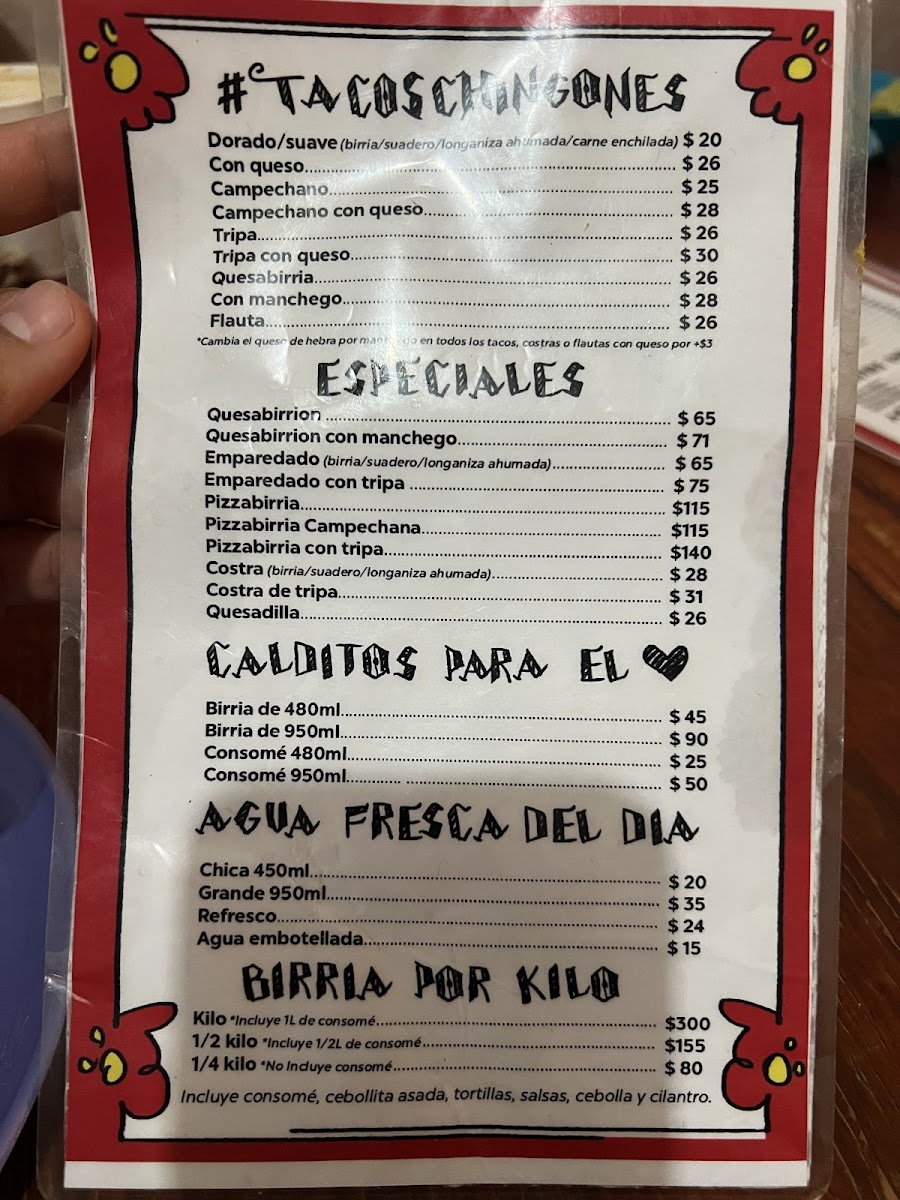 #TACOSCHINGONES
Dorado/suave (birria/suadero/longaniza ahumada/carne enchilada) $ 20
Con queso........ $ 26
Campechano........ $ 25
Campechano con queso........ $ 28
Tripa........ $ 26
Tripa con queso........ $ 30
Quesabirria........ $ 26
Con manchego........ $ 28
Flauta........ $ 26
*Cambia el queso de hebra por en todos los tacos, costras o flautas con queso por +$3
ESPECIALES
Quesabirrion ........ $ 65
Quesabirrion con manchego........ $ 71
Emparedado (birria/suadero/longaniza ahumada)........ $ 65
Emparedado con tripa ........ $ 75
Pizzabirria........ $115
Pizzabirria Campechana........ $115
Pizzabirria con tripa........ $140
Costra (birria/suadero/longaniza ahumada)........ $ 28
Costra de tripa........ $ 31
Quesadilla........ $ 26
CALDITOS PARA EL ♥
Birria de 480ml........ $ 45
Birria de 950ml........ $ 90
Consomé 480ml........ $ 25
Consomé 950ml........ $ 50
AGUA FRESCA DEL DIA
Chica 450ml........ $ 20
Grande 950ml........ $ 35
Refresco........ $ 24
Agua embotellada........ $ 15
BIRRIA POR KILO
Kilo *Incluye 1L de consomé........ $300
1/2 kilo *Incluye 1/2L de consomé........ $155
1/4 kilo *No Incluye consomé........ $ 80
Incluye consomé, cebollita asada, tortillas, salsas, cebolla y cilantro.